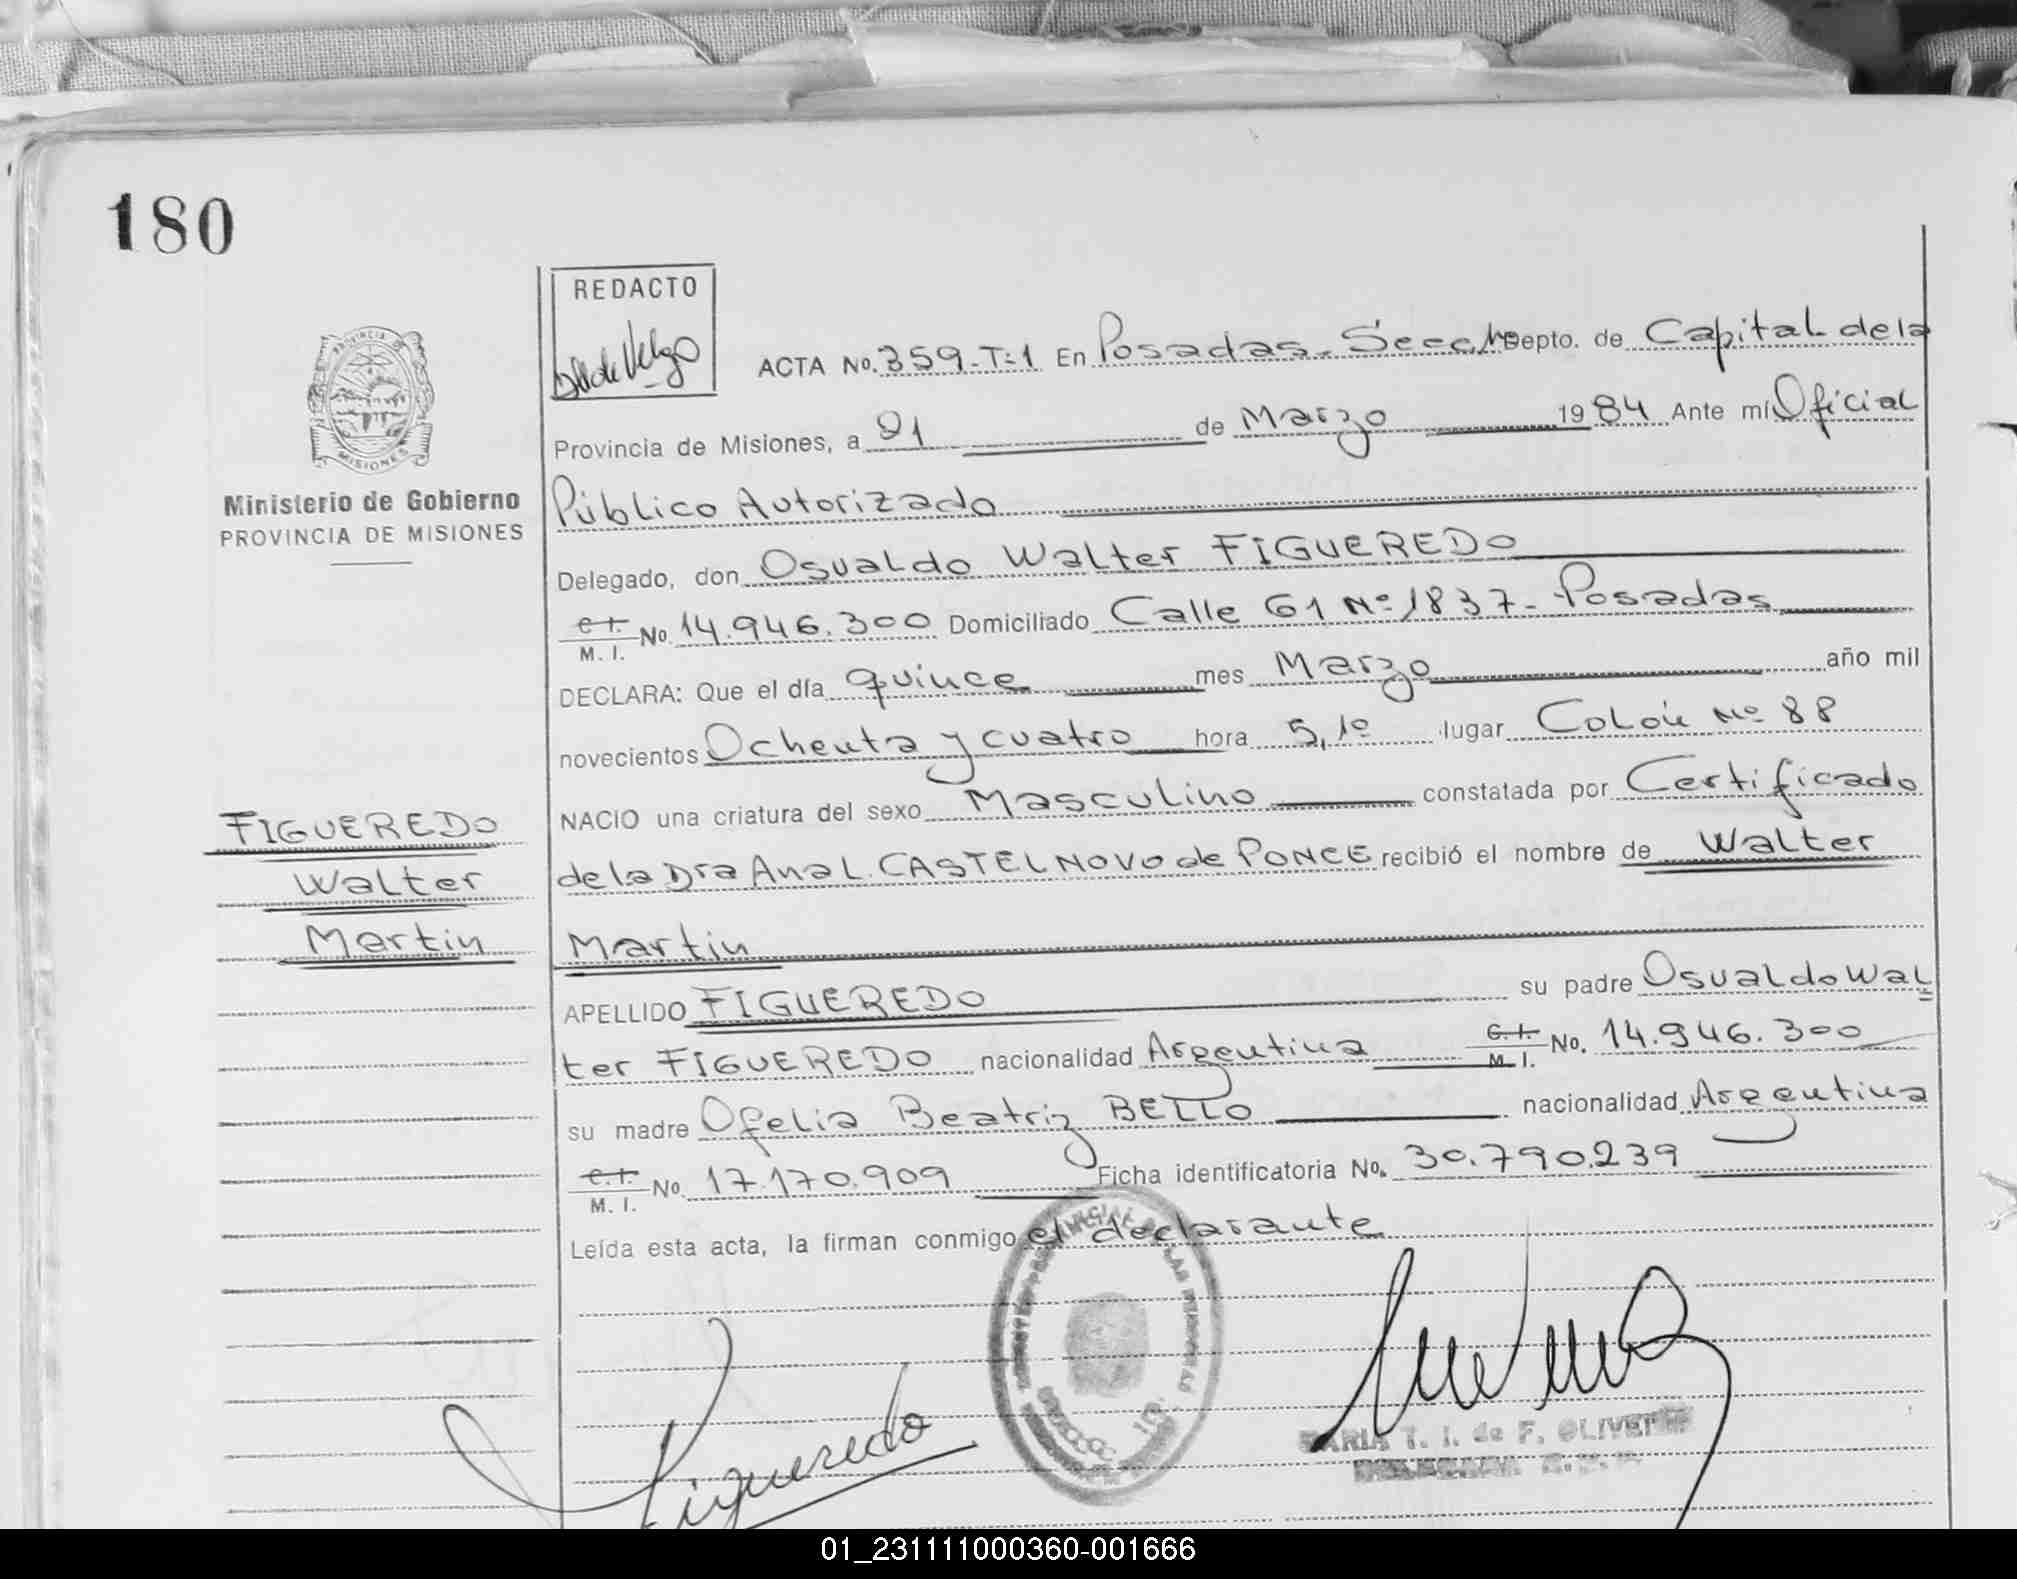 180
REDACTO
PROVINCIA DE
MISIONES
ACTA No. 359-T=1 En Posadas. Secc. Depto. de Capital de la
Provincia de Misiones, a 21 de Marzo 1984 Ante mí Oficial
Ministerio de Gobierno
PROVINCIA DE MISIONES
Público Autorizado
Delegado, don Osvaldo Walter FIGUEREDO
C.I. M. I. No. 14.946.300 Domiciliado Calle 61 Nº 1837- Posadas
DECLARA: Que el día quince mes Marzo año mil
novecientos Ochenta y cuatro hora 5,10 lugar Colón Nº 88
NACIO una criatura del sexo Masculino constatada por Certificado
FIGUEREDO
Walter
Martin
de la Dra Ana L. CASTELNOVO de PONCE recibió el nombre de Walter
Martin
APELLIDO FIGUEREDO su padre Osvaldo Wal
ter FIGUEREDO nacionalidad Argentina C.I. M. I. No. 14.946.300
su madre Ofelia Beatriz BELLO nacionalidad Argentina
C.I. M. I. No. 17.170.909 Ficha identificatoria No. 30.790.239
Leída esta acta, la firman conmigo el declarante
Figueredo
MARIA T. I. de F. OLIVERA
01_231111000360-001666